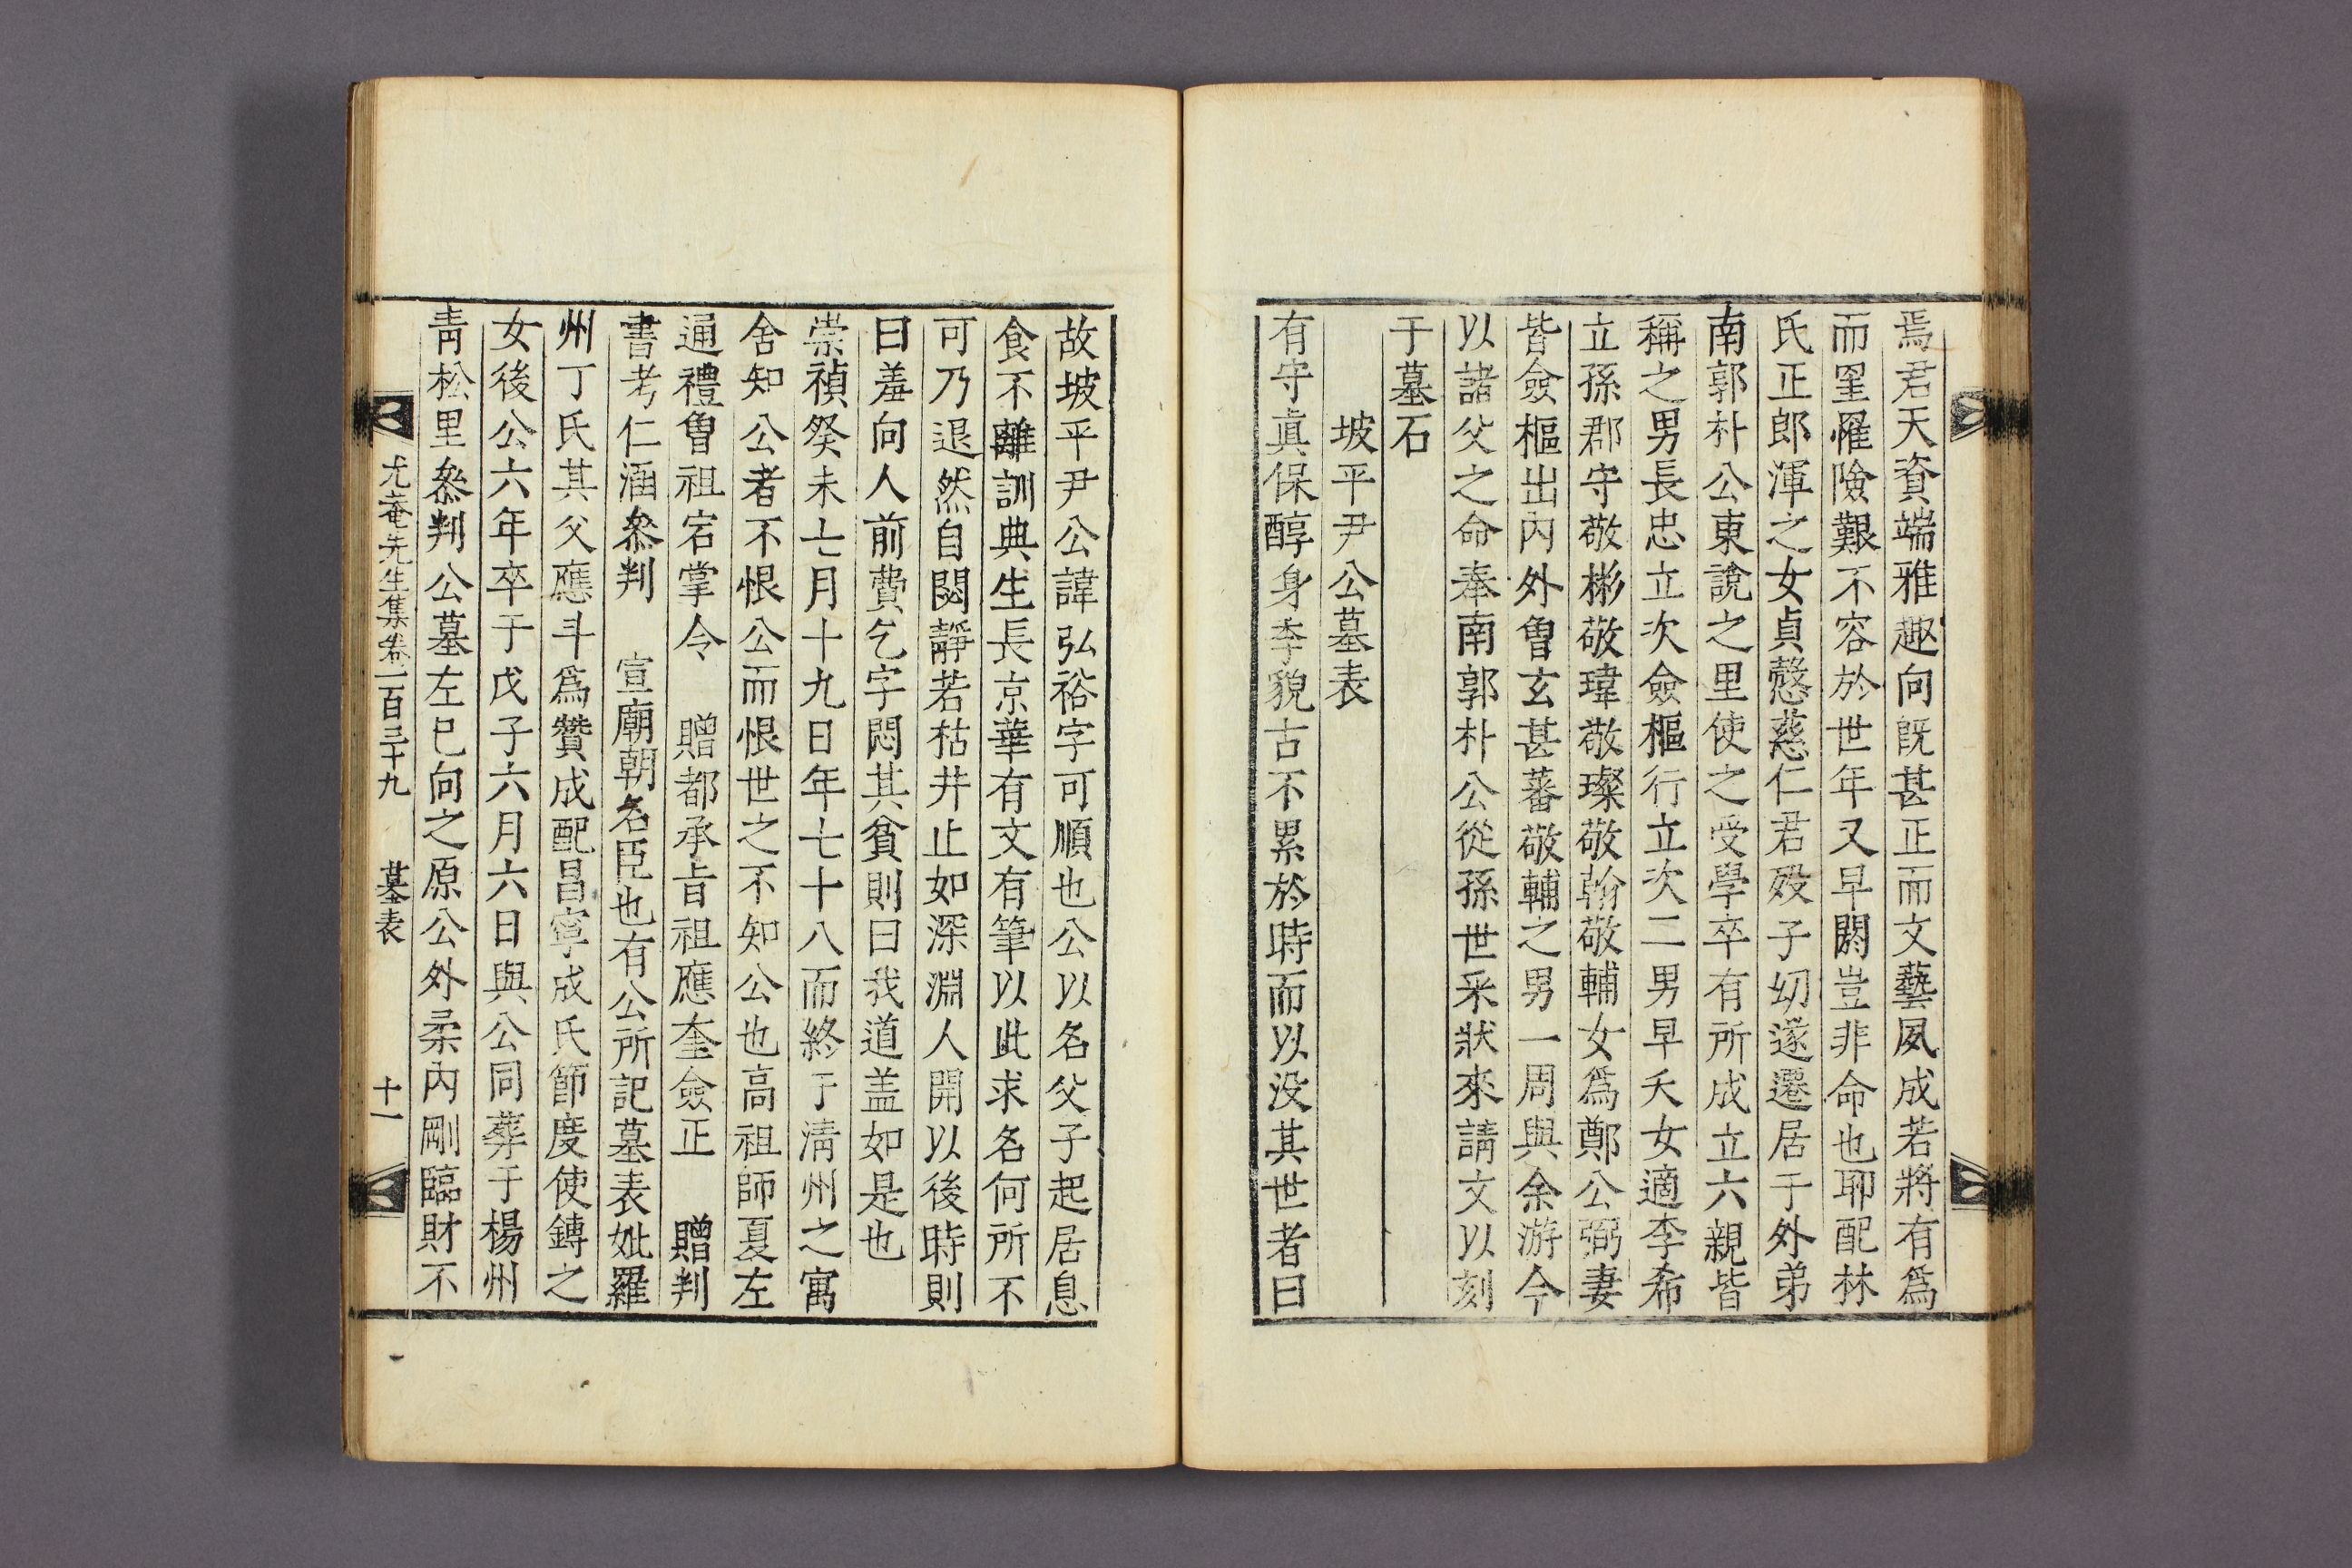 焉君天資端雅趣向旣甚正而文藝夙成若將有爲
而罣罹險艱不容於世年又早閼豈非命也耶配林
氏正郎渾之女貞慤慈仁君歿子幼遂遷居于外弟
南郭朴公東說之里使之受學卒有所成立六親皆
稱之男長忠立次僉樞行立次二男早夭女適李希
立孫郡守敬彬敬瑋敬璨敬翰敬輔女爲鄭公弼妻
皆僉樞出內外曾玄甚蕃敬輔之男一周與余游今
以諸父之命奉南郭朴公從孫世采狀來請文以刻
于墓石
坡平尹公墓表
有守眞保醇身季貌古不累於時而以没其世者曰
故坡平尹公諱弘裕字可順也公以名父子起居息
食不離訓典生長京華有文有筆以此求名何所不
可乃退然自閟靜若枯井止如深淵人開以後時則
曰羞向人前費乞字悶其貧則曰我道盖如是也
崇禎癸未七月十九日年七十八而終于淸州之寓
舍知公者不恨公而恨世之不知公也高祖師夏左
通禮曾祖宕掌令 贈都承旨祖應奎僉正 贈判
書考仁涵叅判 宣廟朝名臣也有公所記墓表妣羅
州丁氏其父應斗爲贊成配昌寧成氏節度使鏄之
女後公六年卒于戊子六月六日與公同葬于楊州
靑松里叅判公墓左巳向之原公外柔內剛臨財不
尤菴先生集卷一百九十九 墓表 十一